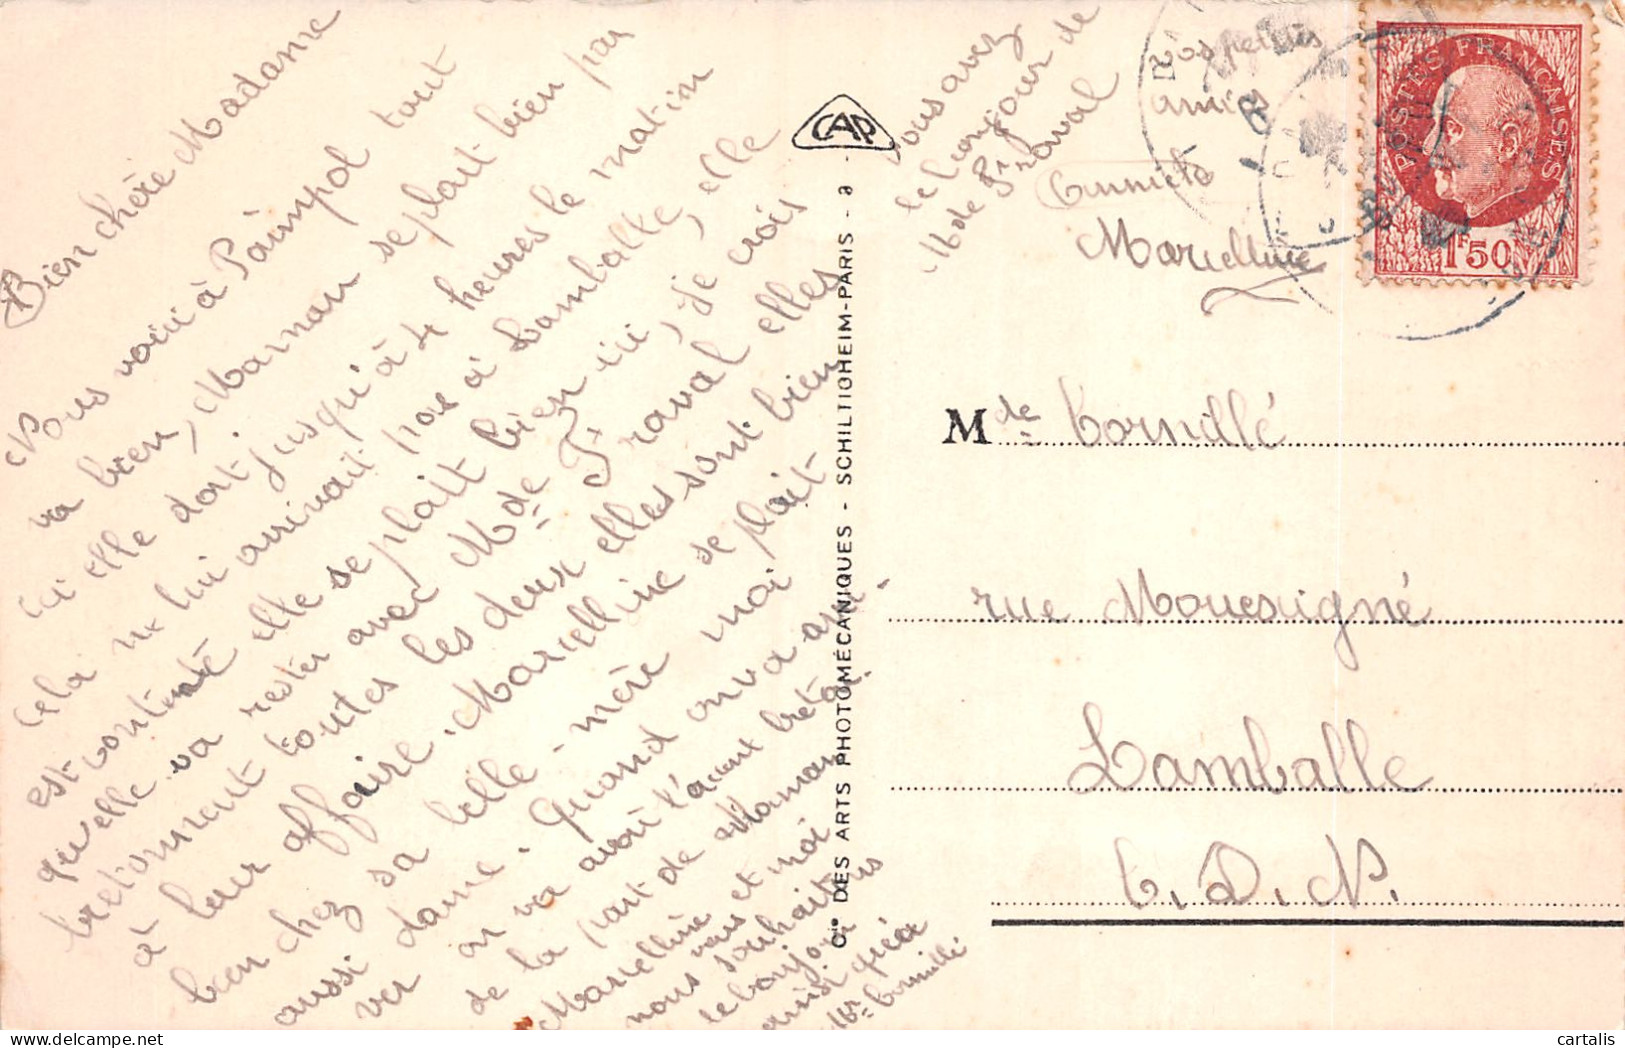 Bien chère Madame
Nous voici à Paimpol tout
va bien, Maman se plait bien par
ici elle dort jusqu'à 4 heures le matin
cela ne lui arrivait pas à Lamballe, elle
est contente elle se plait bien ici, je crois
qu'elle va rester avec Mde Fraval elles
bretonnent toutes les deux elles sont bien
à leur affaire. Marcelline se plait
bien chez sa belle-mère moi
aussi dame. Quand on va arri-
ver on va avoir l'accent breton.
de la part de Maman
Marcelline et moi
nous vous souhaitons
le bonjour
ainsi qu'à
Mr Cornillé
vous avez
le bonjour de
M de Fraval
vos petites
amies
Annick
Marcelline
CAP
Cie DES ARTS PHOTOMÉCANIQUES - SCHILTIGHEIM-PARIS - a
POSTES FRANÇAISES
1F50
Mde Cornillé
rue
Lamballe
C. D. N.
cartalis